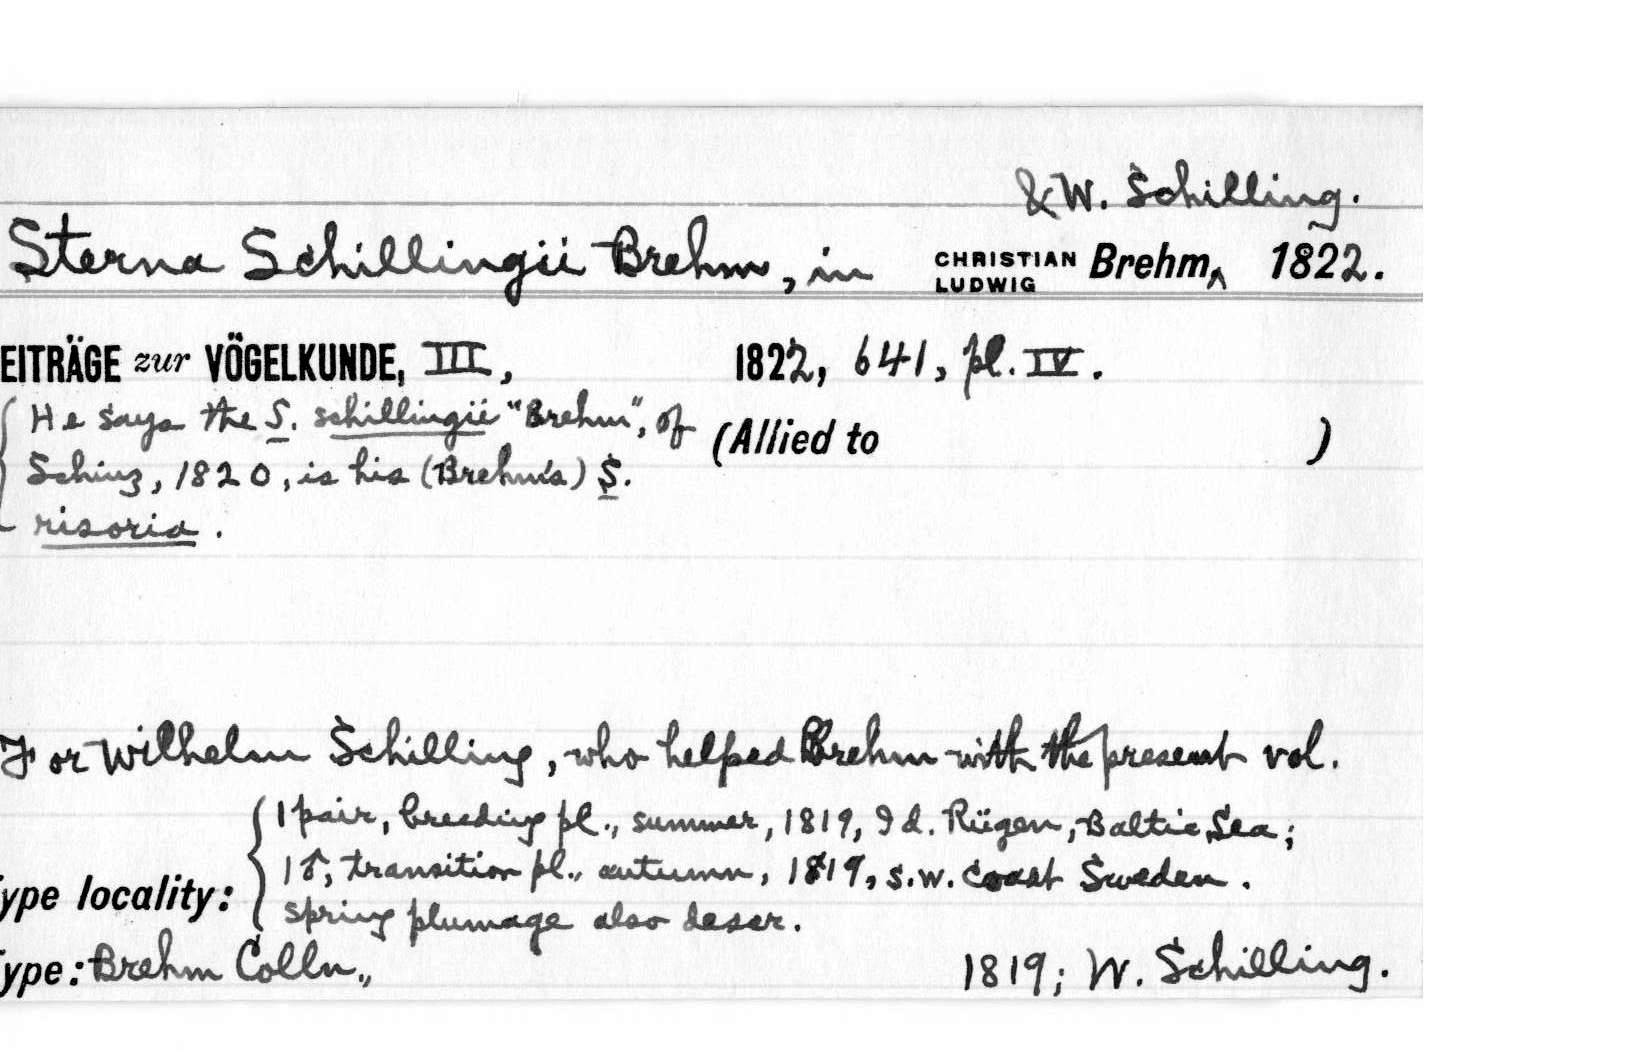 & W. Schilling.
Sterna Schillingii Brehm, in CHRISTIAN LUDWIG Brehm, ^ 1822.
EITRÄGE zur VÖGELKUNDE, III, 1822, 641, pl. IV.
He says the S. schillingii "Brehm", of (Allied to )
Schinz, 1820, is his (Brehm's) S.
risoria.
For Wilhelm Schilling, who helped Brehm with the present vol.
1 pair, breeding pl., summer, 1819, Id. Rügen, Baltic Sea;
1 ♂, transition pl., autumn, 1819, s.w. coast Sweden.
ype locality:
spring plumage also descr.
ype: Brehm Colln., 1819; W. Schilling.